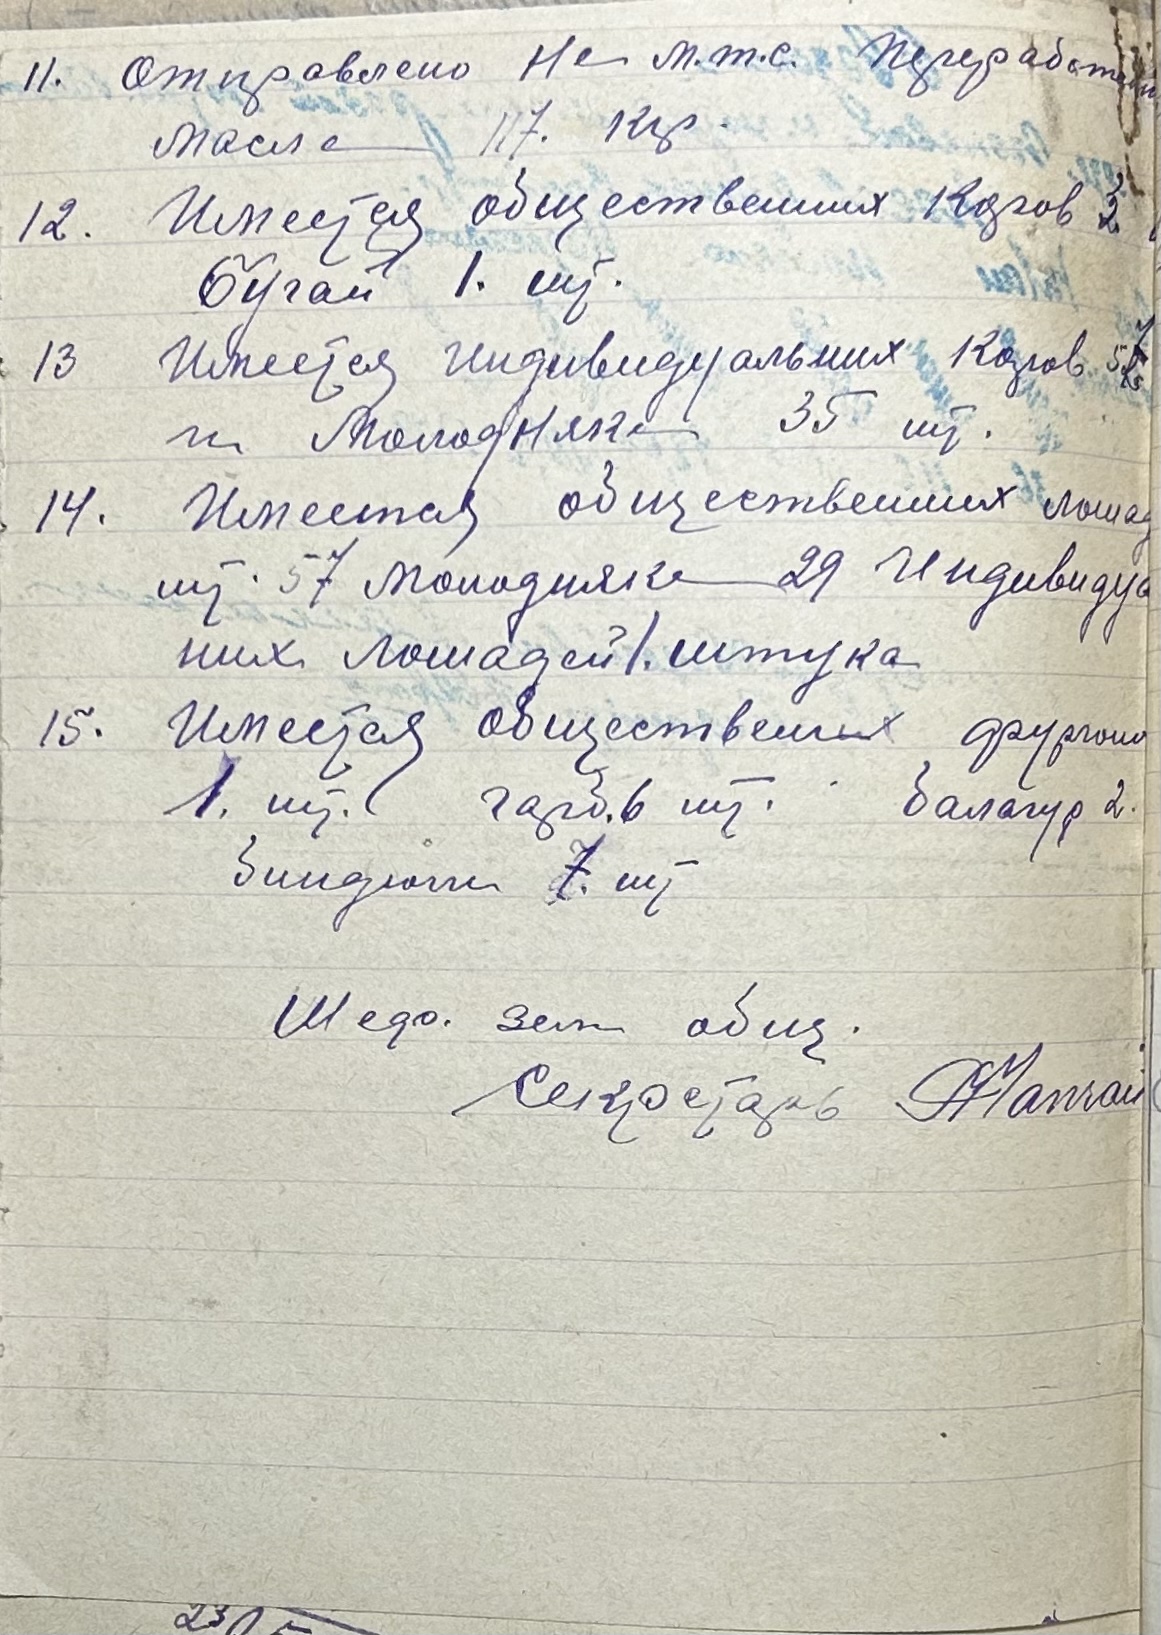 11. Отправлено На м.т.с. Переработан
масла 117. Кгр.
12. Имеется общественних Коров 3.
бугай 1. шт.
13 Имеется индивидуальних Коров
и Молодняка 35 шт.
14. Имеется общественних лошад
шт. 57 молодняка 29 Индивидуа
них лошадей 1. штука
15. Имеется обществених фургоно
1. шт. гарб. 6 шт. балагур 2.
7. шт
зем общ.
Секретарь
23